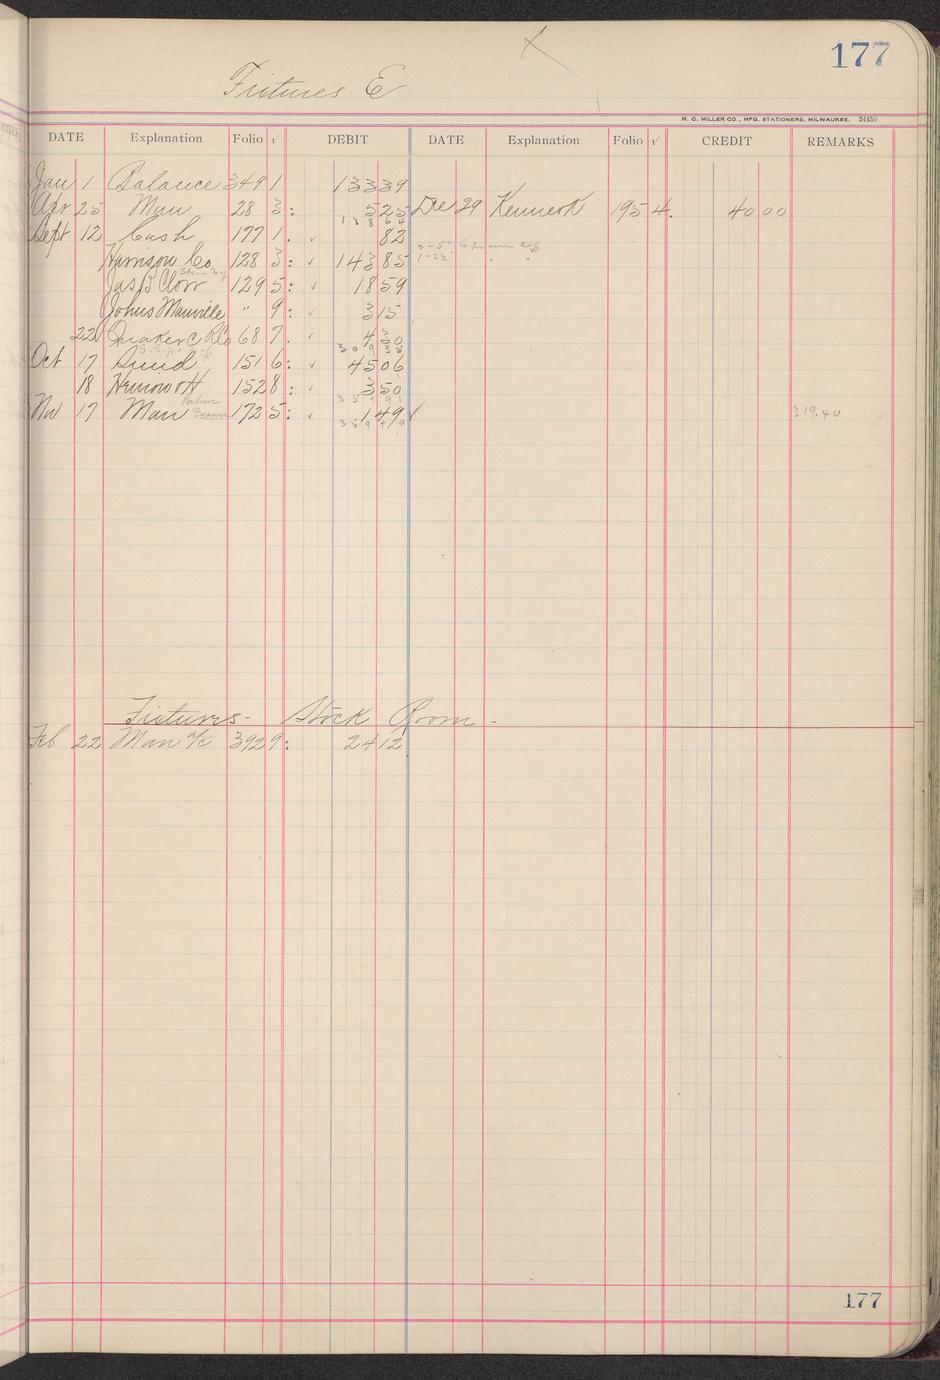 177
Fixtures E
H. C. MILLER CO., MFG. STATIONERS, MILWAUKEE. 24450
DATE Explanation Folio √ DEBIT DATE Explanation Folio √ CREDIT REMARKS
Jan 1 Balance 349 1 133 39
Apr 25 Man 28 3: 5 25 Dec 29 Kennerk 195 4. 40 00
138 64
Sept 12 Cash 177 1. ✓ 82
Harrison Co 128 3: ✓ 143 85
Jas B Clow 129 5: ✓ 18 59
Johns Manville " 9: ✓ 3 15
22 Quaker C R Co 68 7. ✓ 4 30
Oct 17 Sund 151 6: ✓ 45 06
18 152 8: ✓ 3 50
Nov 17 Man Frame 172 5: ✓ 1 49 ✓ 319.40
359 40
Fixtures - Stock Room -
Feb 22 Man a/c 392 9: 24 12
177